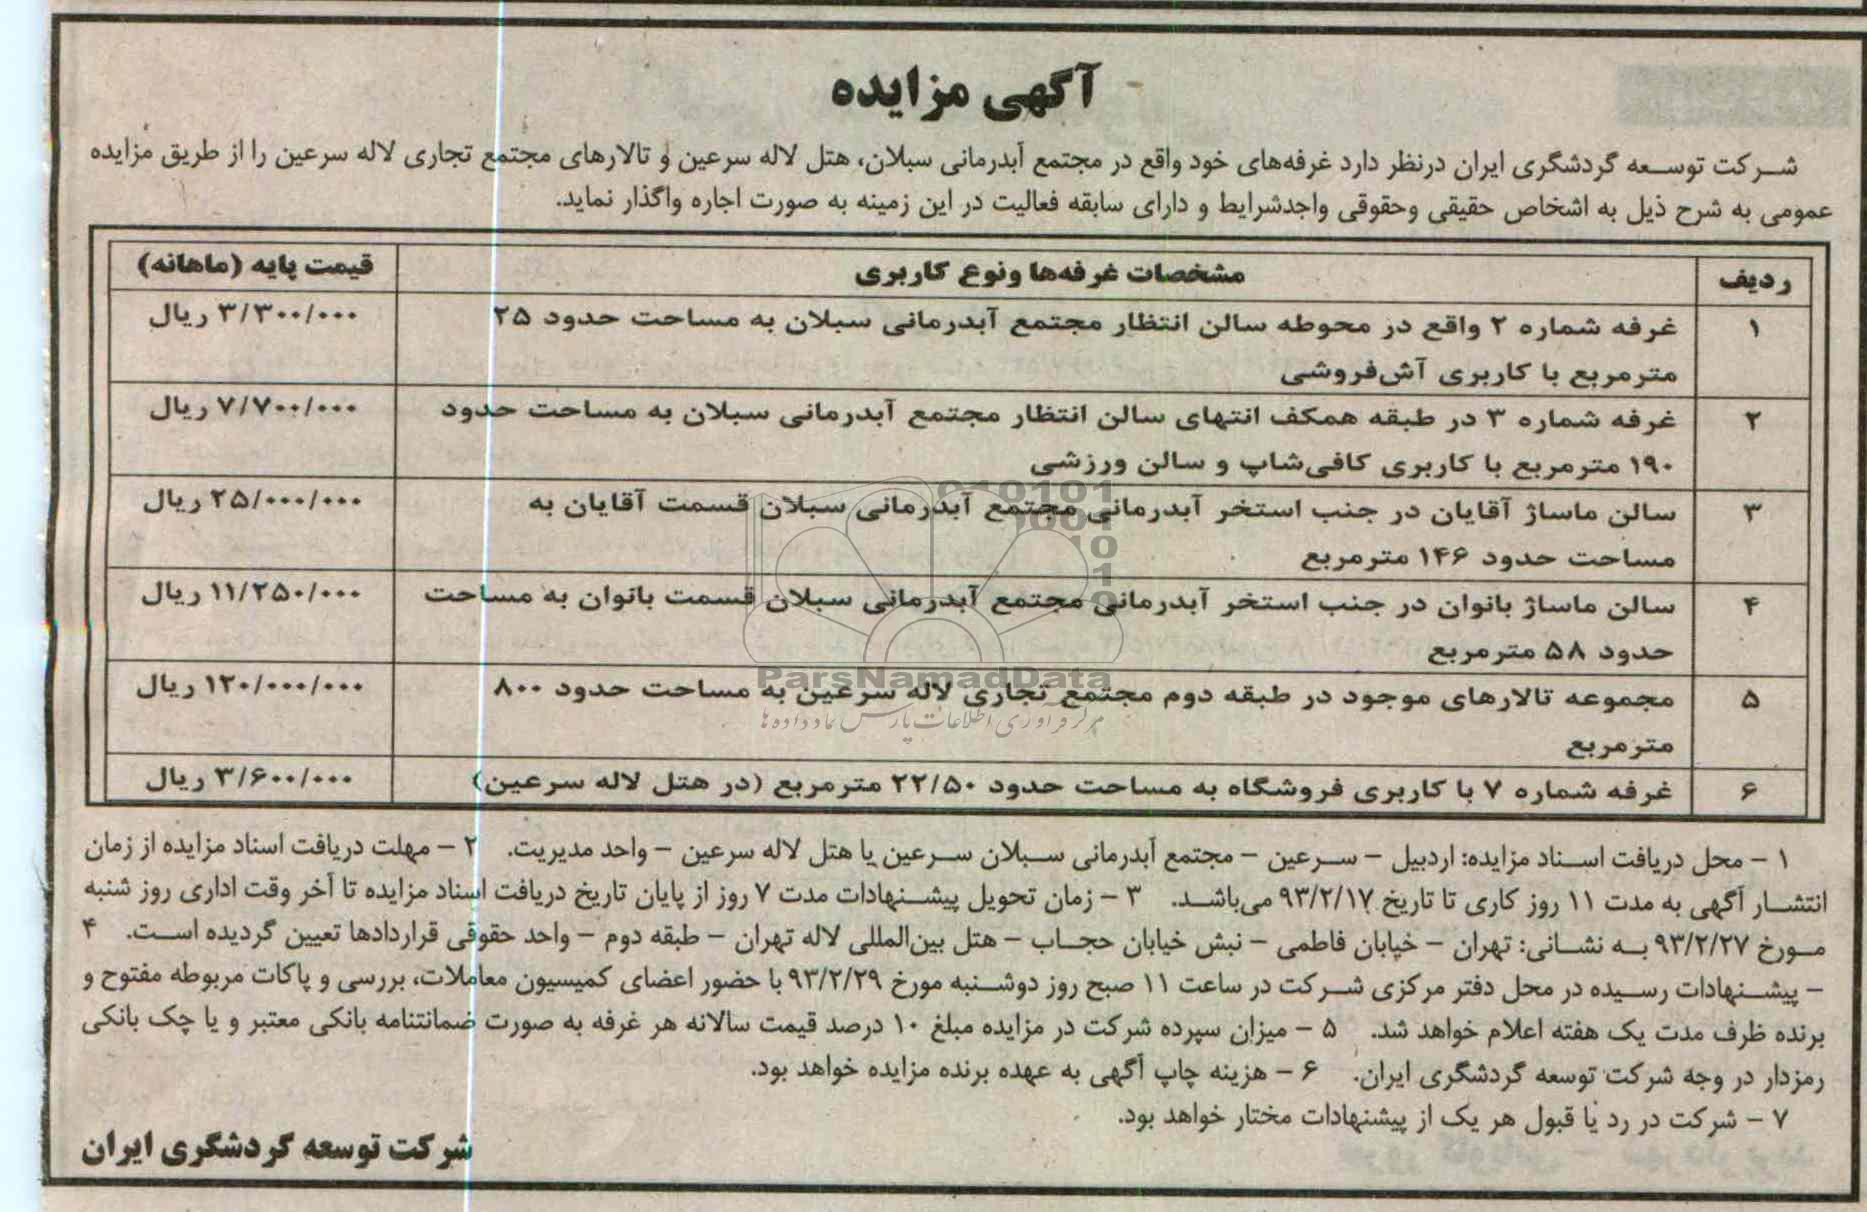 آگهی مزایده
شرکت توسعه گردشگری ایران درنظر دارد غرفه‌های خود واقع در مجتمع آبدرمانی سبلان، هتل لاله سرعین و تالارهای مجتمع تجاری لاله سرعین را از طریق مزایده
عمومی به شرح ذیل به اشخاص حقیقی وحقوقی واجدشرایط و دارای سابقه فعالیت در این زمینه به صورت اجاره واگذار نماید.
ردیف مشخصات غرفه‌ها ونوع کاربری قیمت پایه (ماهانه)
۱ غرفه شماره ۲ واقع در محوطه سالن انتظار مجتمع آبدرمانی سبلان به مساحت حدود ۲۵ ۳/۳۰۰/۰۰۰ ریال
مترمربع با کاربری آش‌فروشی
۲ غرفه شماره ۳ در طبقه همکف انتهای سالن انتظار مجتمع آبدرمانی سبلان به مساحت حدود ۷/۷۰۰/۰۰۰ ریال
۱۹۰ مترمربع با کاربری کافی‌شاپ و سالن ورزشی
۳ سالن ماساژ آقایان در جنب استخر آبدرمانی مجتمع آبدرمانی سبلان قسمت آقایان به ۲۵/۰۰۰/۰۰۰ ریال
مساحت حدود ۱۴۶ مترمربع
۴ سالن ماساژ بانوان در جنب استخر آبدرمانی مجتمع آبدرمانی سبلان قسمت بانوان به مساحت ۱۱/۲۵۰/۰۰۰ ریال
حدود ۵۸ مترمربع
۵ مجموعه تالارهای موجود در طبقه دوم مجتمع تجاری لاله سرعین به مساحت حدود ۸۰۰ ۱۲۰/۰۰۰/۰۰۰ ریال
مترمربع
۶ غرفه شماره ۷ با کاربری فروشگاه به مساحت حدود ۲۲/۵۰ مترمربع (در هتل لاله سرعین) ۳/۶۰۰/۰۰۰ ریال
ParsNamadData
مرکز فرآوری اطلاعات پارس نماد داده ها
۱ – محل دریافت اسناد مزایده: اردبیل – سرعین – مجتمع آبدرمانی سبلان سرعین یا هتل لاله سرعین – واحد مدیریت. ۲ – مهلت دریافت اسناد مزایده از زمان
انتشار آگهی به مدت ۱۱ روز کاری تا تاریخ ۹۳/۲/۱۷ می‌باشد. ۳ – زمان تحویل پیشنهادات مدت ۷ روز از پایان تاریخ دریافت اسناد مزایده تا آخر وقت اداری روز شنبه
مورخ ۹۳/۲/۲۷ به نشانی: تهران – خیابان فاطمی – نبش خیابان حجاب – هتل بین‌المللی لاله تهران – طبقه دوم – واحد حقوقی قراردادها تعیین گردیده است. ۴
– پیشنهادات رسیده در محل دفتر مرکزی شرکت در ساعت ۱۱ صبح روز دوشنبه مورخ ۹۳/۲/۲۹ با حضور اعضای کمیسیون معاملات، بررسی و پاکات مربوطه مفتوح و
برنده ظرف مدت یک هفته اعلام خواهد شد. ۵ – میزان سپرده شرکت در مزایده مبلغ ۱۰ درصد قیمت سالانه هر غرفه به صورت ضمانتنامه بانکی معتبر و یا چک بانکی
رمزدار در وجه شرکت توسعه گردشگری ایران. ۶ – هزینه چاپ آگهی به عهده برنده مزایده خواهد بود.
۷ – شرکت در رد یا قبول هر یک از پیشنهادات مختار خواهد بود.
شرکت توسعه گردشگری ایران